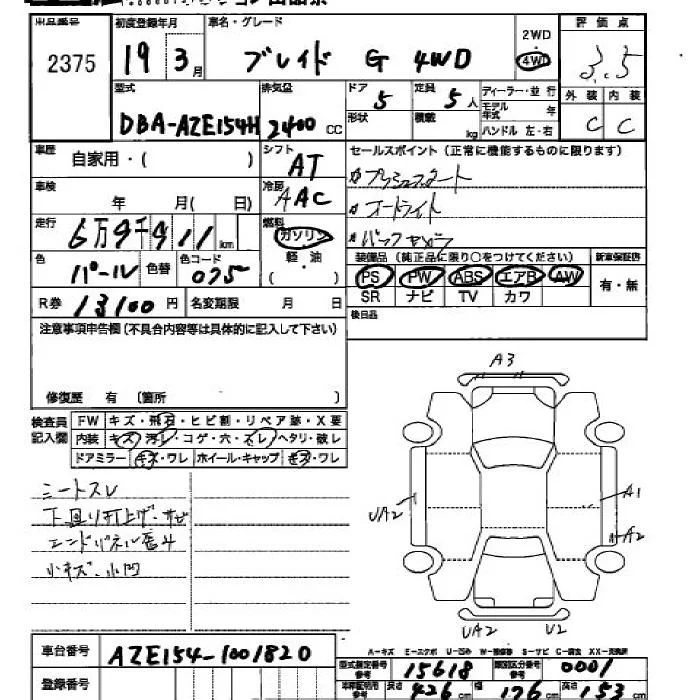 出品番号 初度登録年月 車名・グレード 2WD 評価点
2375 19 3月 ブレイド G 4WD 4WD 3.5
型式 排気量 ドア 5 定員 5人 ディーラー・並行 外装 内装
DBA-AZE154H 2400 CC 形状 積載 kg モデル年式 年 ハンドル 左・右 C C
車歴 自家用・( ) シフト AT セールスポイント(正常に機能するものに限ります)
車検 年 月( 日) 冷房 AAC プッシュスタート
オートライト
走行 6万9千911km 燃料 ガソリン バックカメラ
色 パール 色替 色コード 075 軽・油 ( ) 装備品(純正品に限り○をつけてください) 新車保証書
PS PW ABS エアB AW 有・無
R券 13100円 名変期限 月 日 SR ナビ TV カワ
注意事項申告欄(不具合内容等は具体的に記入して下さい) 後日品
修復歴 有 〔箇所 〕
検査員記入欄 FW キズ・飛石・ヒビ割・リペア跡・X要
内装 キズ・汚レ・コゲ・穴・スレ・ヘタリ・破レ
ドアミラー キズ・ワレ ホイール・キャップ キズ・ワレ
シートスレ
下回り打上げ・サビ
小キズ・小凹
A3
UA2
A1
A2
UA2 U2
A-キズ E-エクボ U-凹み S-サビ C-腐食
車台番号 AZE154-1001820
型式指定番号 15618 類別区分番号 0001
登録番号 長さ 426cm 幅 176cm 高さ 153cm